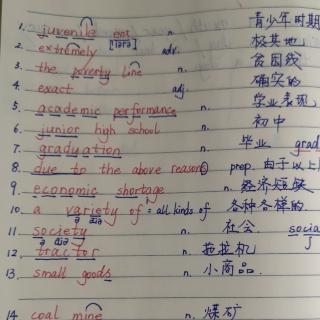 1. juvenile ent n. 青少年时期
2. extremely [ɪərə] adv. 极其地
3. the poverty line n. 贫困线
4. exact adj. 确实的
5. academic performance n. 学业表现
6. junior high school n. 初中
7. graduation n. 毕业 grad
8. due to the above reasons prep. 由于以上
9. economic shortage n. 经济短缺
10. a variety of = all kinds of 各种各样的
11. society n. 社会. socia
12. tractor n. 拖拉机
13. small goods n. 小商品.
14 coal mine n. 煤矿